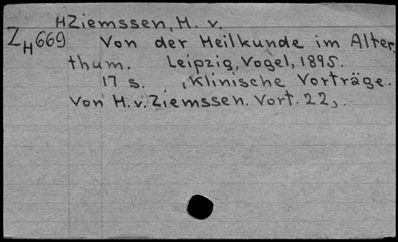 HZiemssen, H. v.
ZH669 Von der Heilkunde im Alter,
thum. Leipzig, Vogel, 1895.
17 s. ,Klinische Vorträge.
Von H. v. Ziemssen. Vort. 22,.